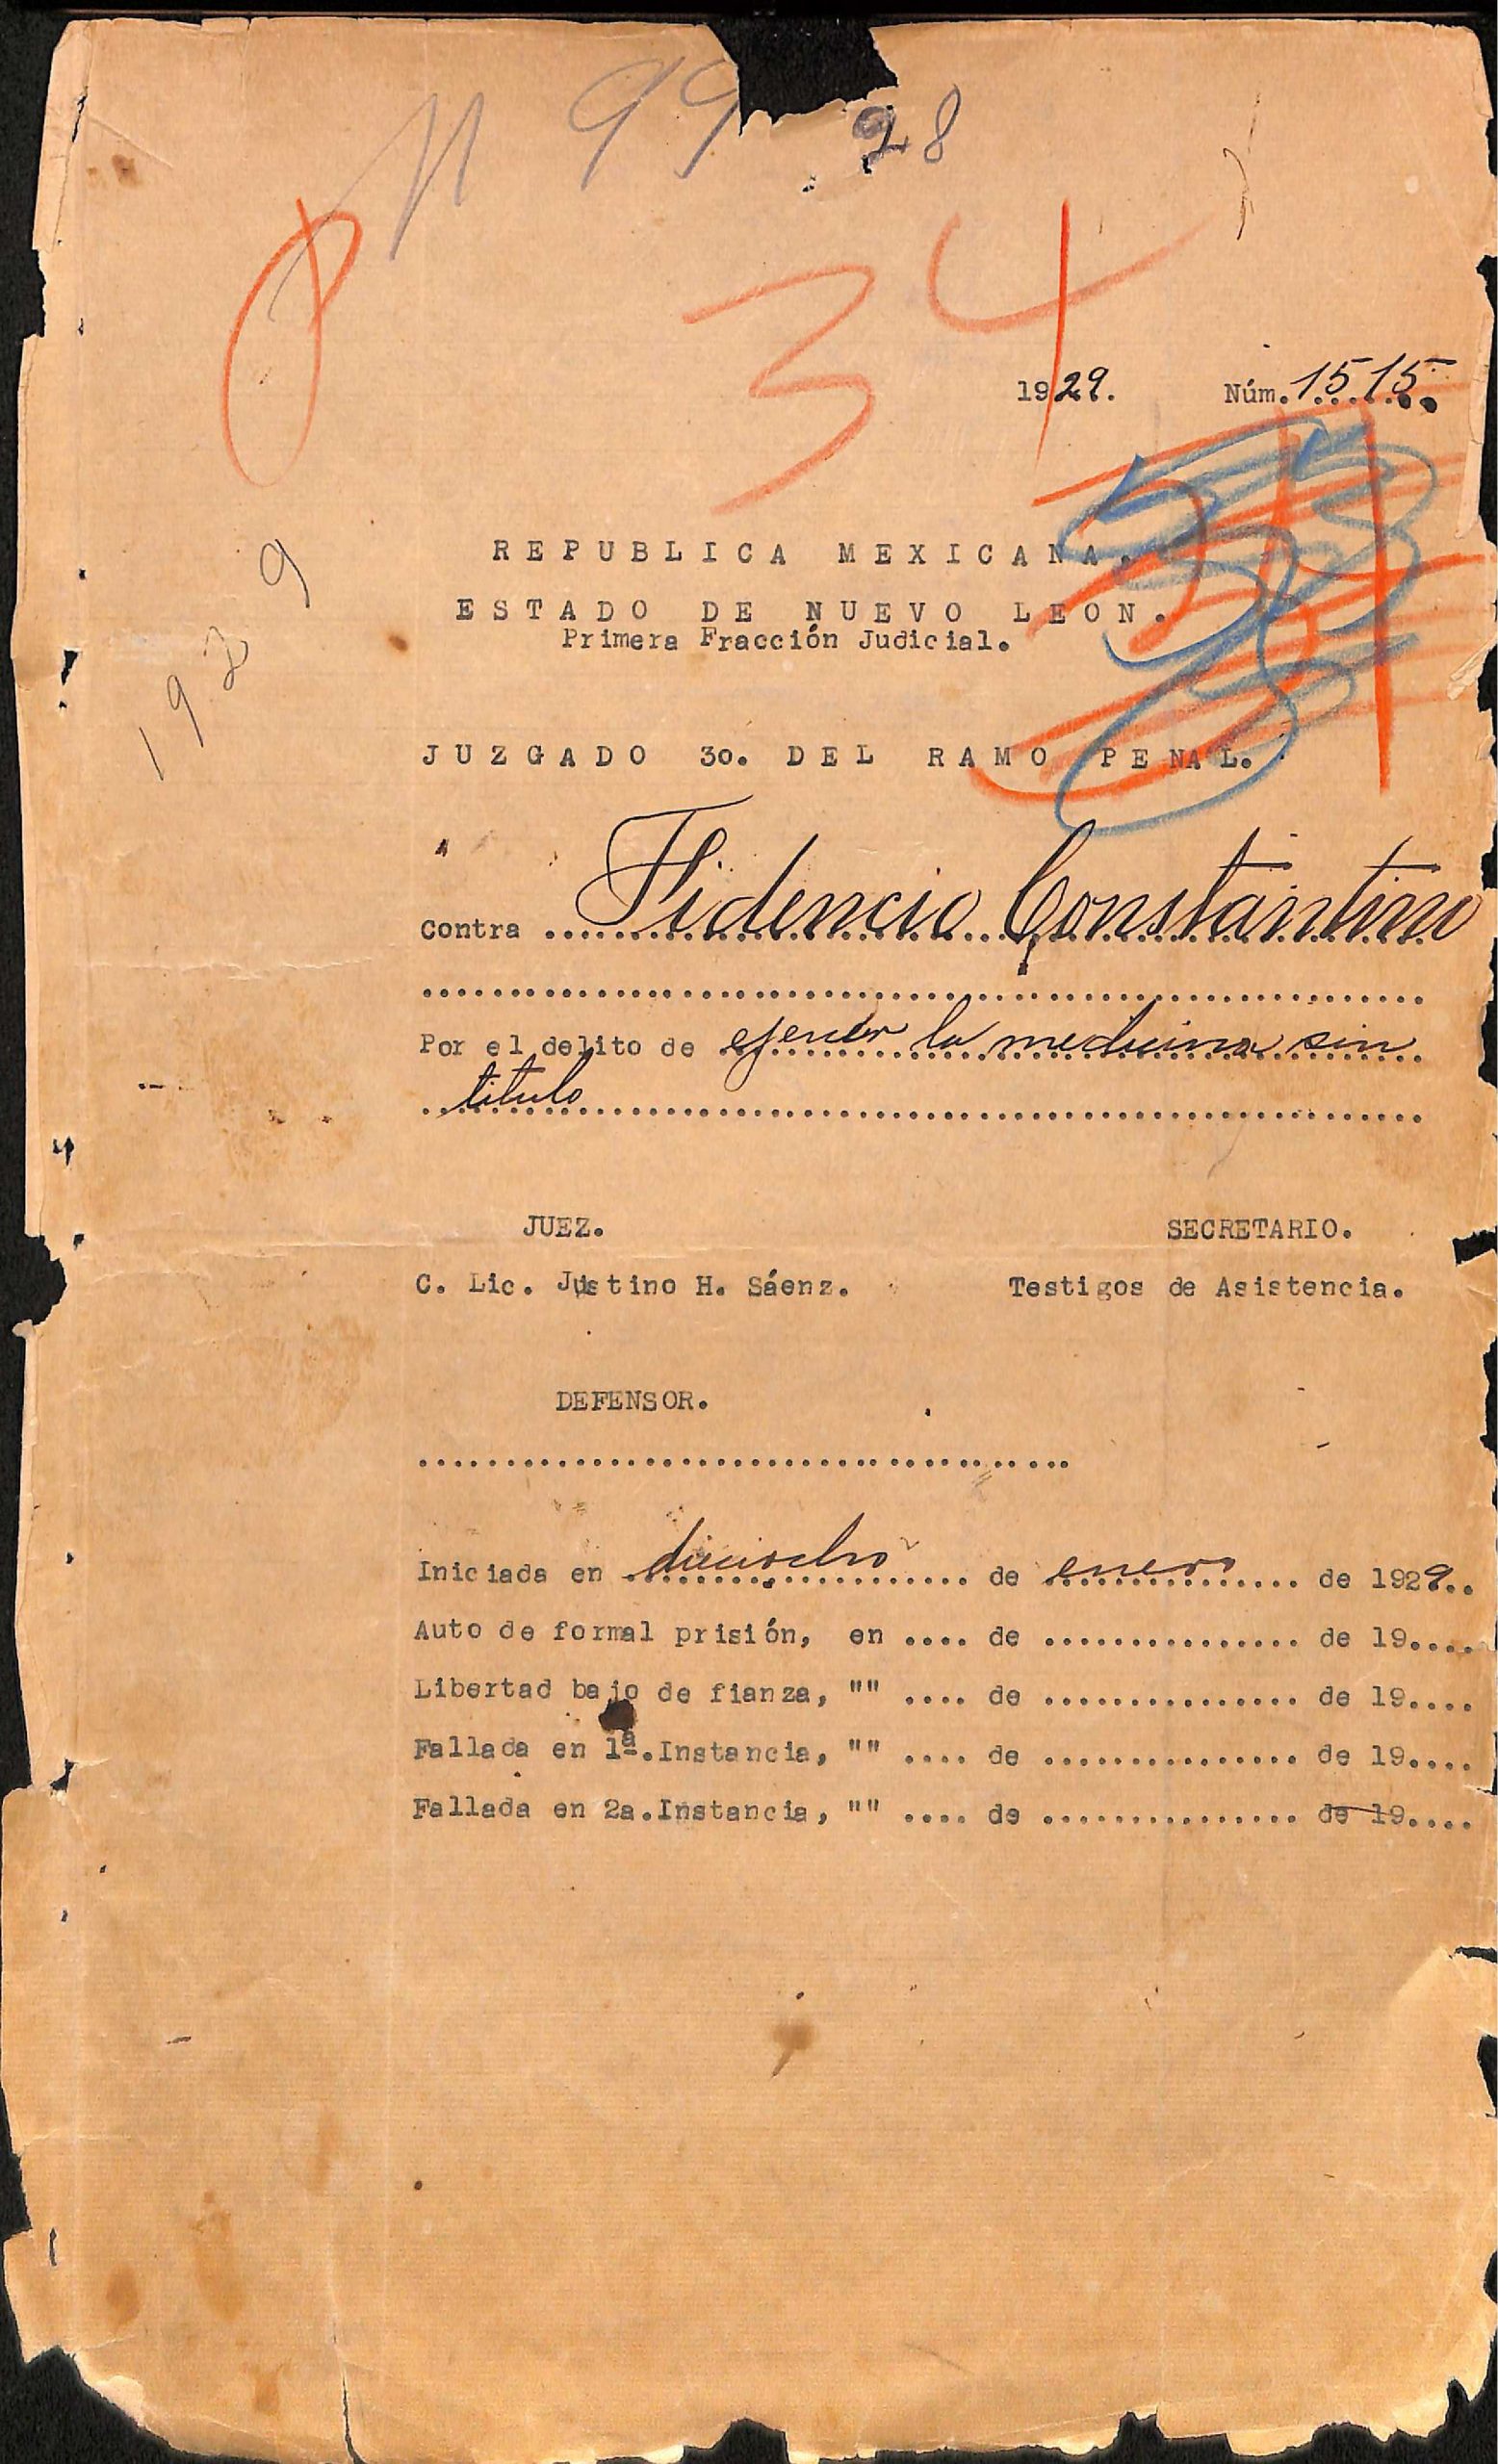 N 99 28
34
1929. Núm. 1515.
1929
REPUBLICA MEXICANA.
ESTADO DE NUEVO LEON.
Primera Fracción Judicial.
JUZGADO 3o. DEL RAMO PENAL.
Contra .... Fidencio Constantino
..........
Por el delito de ejercer la medicina sin
titulo ..........
JUEZ. SECRETARIO.
C. Lic. Justino H. Sáenz. Testigos de Asistencia.
DEFENSOR.
..........
Iniciada en dieciocho .... de enero .... de 1929..
Auto de formal prisión, en .... de ............... de 19....
Libertad bajo de fianza, "" .... de ............... de 19....
Fallada en 1ª.Instancia, "" .... de ............... de 19....
Fallada en 2a.Instancia, "" .... de ............... de 19....